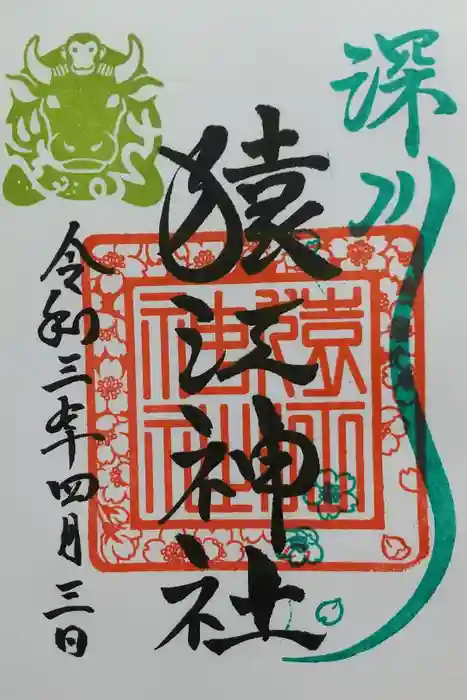 深川
猿江神社
猿江
神社
令和三年四月三日